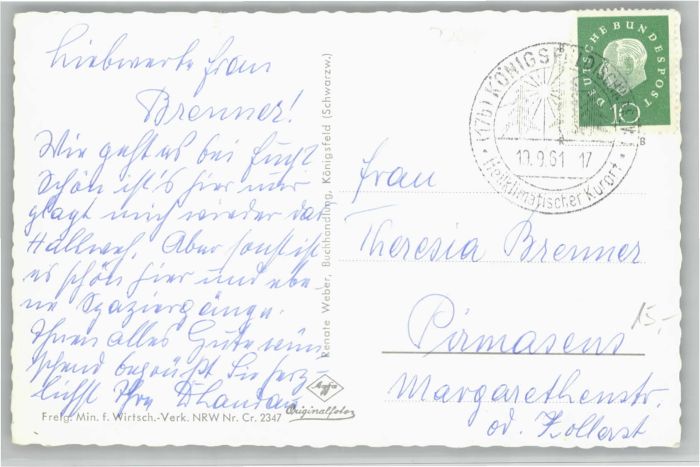 Liebwerte Frau
Brenner!
Wie geht es bei Euch?
Schön ist's hier nur
plagt mich wieder das
Halsweh. Aber sonst ist
es schön hier und ebe-
ne Spaziergänge.
Ihnen alles Gute wün-
schend begrüßt Sie herz-
lichst Ihre
Freig. Min. f. Wirtsch.-Verk. NRW Nr. Cr. 2347
Renate Weber, Buchhandlung, Königsfeld (Schwarzw.)
Agfa
Originalfoto
DEUTSCHE BUNDESPOST
10
(17b) KÖNIGSFELD (SCHWARZW)
B
19.9.61 17
Heilklimatischer Kurort
Frau
Theresia Brenner
Pirmasens
Margarethenstr.
od. Kollerst
15,-